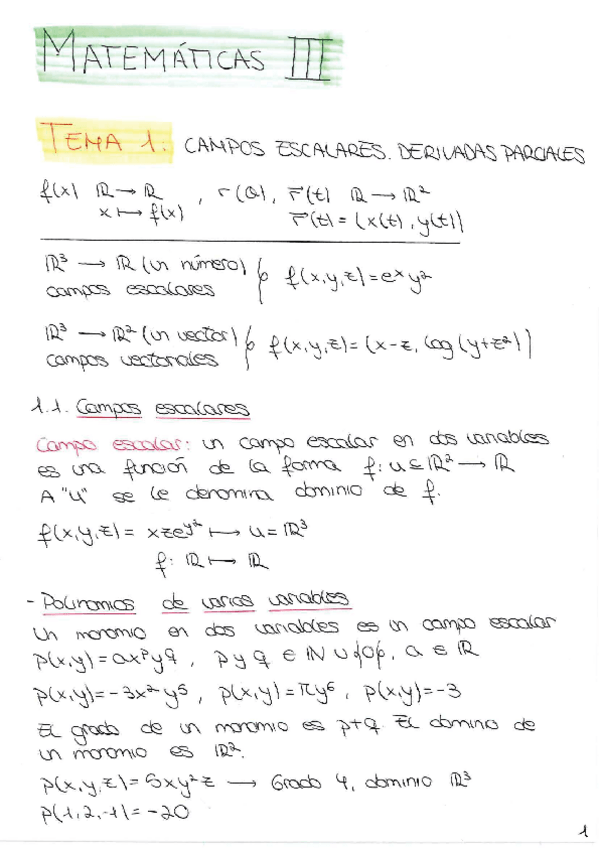 MATEMÁTICAS III
TEMA 1. CAMPOS ESCALARES. DERIVADAS PARCIALES
f(x) ℝ → ℝ , r(θ), r⃗(t) ℝ → ℝ²
x ↦ f(x) r⃗(t) = (x(t), y(t))
ℝ³ → ℝ (un número)
campos escalares f(x,y,z) = eˣy²
ℝ³ → ℝ² (un vector)
campos vectoriales f(x,y,z) = (x-z, log(y+z²))
1.1. Campos escalares
Campo escalar: un campo escalar en dos variables
es una función de la forma f: u ⊆ ℝ² → ℝ
A "u" se le denomina dominio de f.
f(x,y,z) = xze^y² ↦ u = ℝ³
f: ℝ ↦ ℝ
- Polinomios de varias variables
Un monomio en dos variables es un campo escalar
p(x,y) = axᵖy^q , p y q ∈ ℕ ∪ {0}, a ∈ ℝ
p(x,y) = -3x²y⁵ , p(x,y) = πy⁶ , p(x,y) = -3
El grado de un monomio es p+q. El dominio de
un monomio es ℝ².
p(x,y,z) = 5xy²z → Grado 4, dominio ℝ³
p(1,2,-1) = -20
1